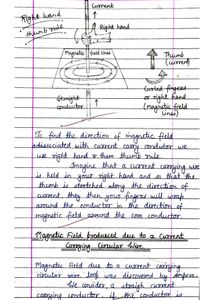 Right hand
thumb rule.
Current
Right hand
Magnetic field lines
Thumb
(current)
Straight
conductor
Curled fingers
of right hand
(Magnetic field
lines)
To find the direction of magnetic field
associated with current carry conductor we
use right hand thum rule.
Imagine that a current carrying wire
is held in your right hand and so that the
thumb is stretched along the direction of
current, they then your fingers will wrap
around the conductor in the direction of
magnetic field around the conductor.
Magnetic Field produced due to a Current
Carrying Circular Wire
Magnetic field due to a current carrying
circular wire loop was discovered by ampere.
We consider, a straight current
carrying conductor, if the conductor is